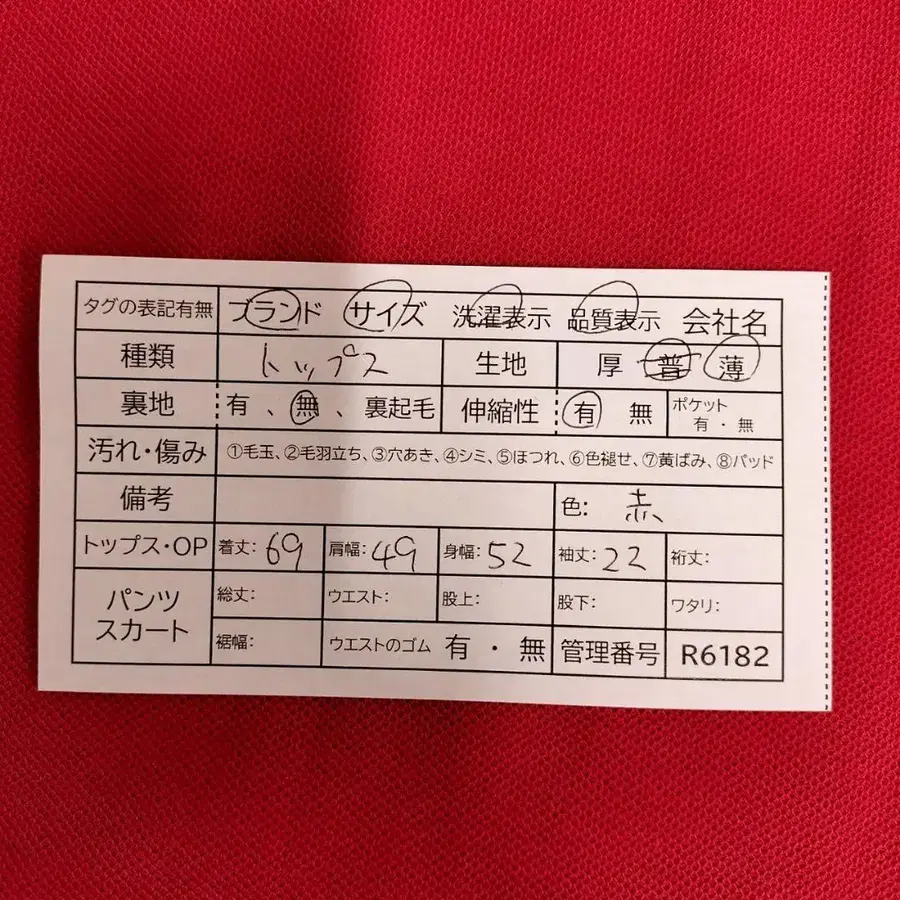 タグの表記有無 ブランド サイズ 洗濯表示 品質表示 会社名
種類 トップス 生地 厚 普 薄
裏地 有 、 無 、 裏起毛 伸縮性 有 無 ポケット 有 ・ 無
汚れ・傷み ①毛玉、②毛羽立ち、③穴あき、④シミ、⑤ほつれ、⑥色褪せ、⑦黄ばみ、⑧パッド
備考 色: 赤
トップス・OP 着丈: 69 肩幅: 49 身幅: 52 袖丈: 22 裄丈:
パンツ スカート 総丈: ウエスト: 股上: 股下: ワタリ:
裾幅: ウエストのゴム 有 ・ 無 管理番号 R6182